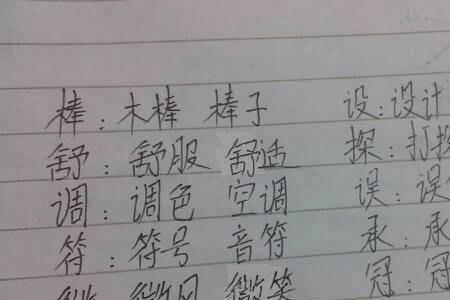 棒：木棒 棒子 设：设计
舒：舒服 舒适 探：打探
调：调色 空调 误：误
符：符号 音符 承：承
微：微风 微笑 冠：冠